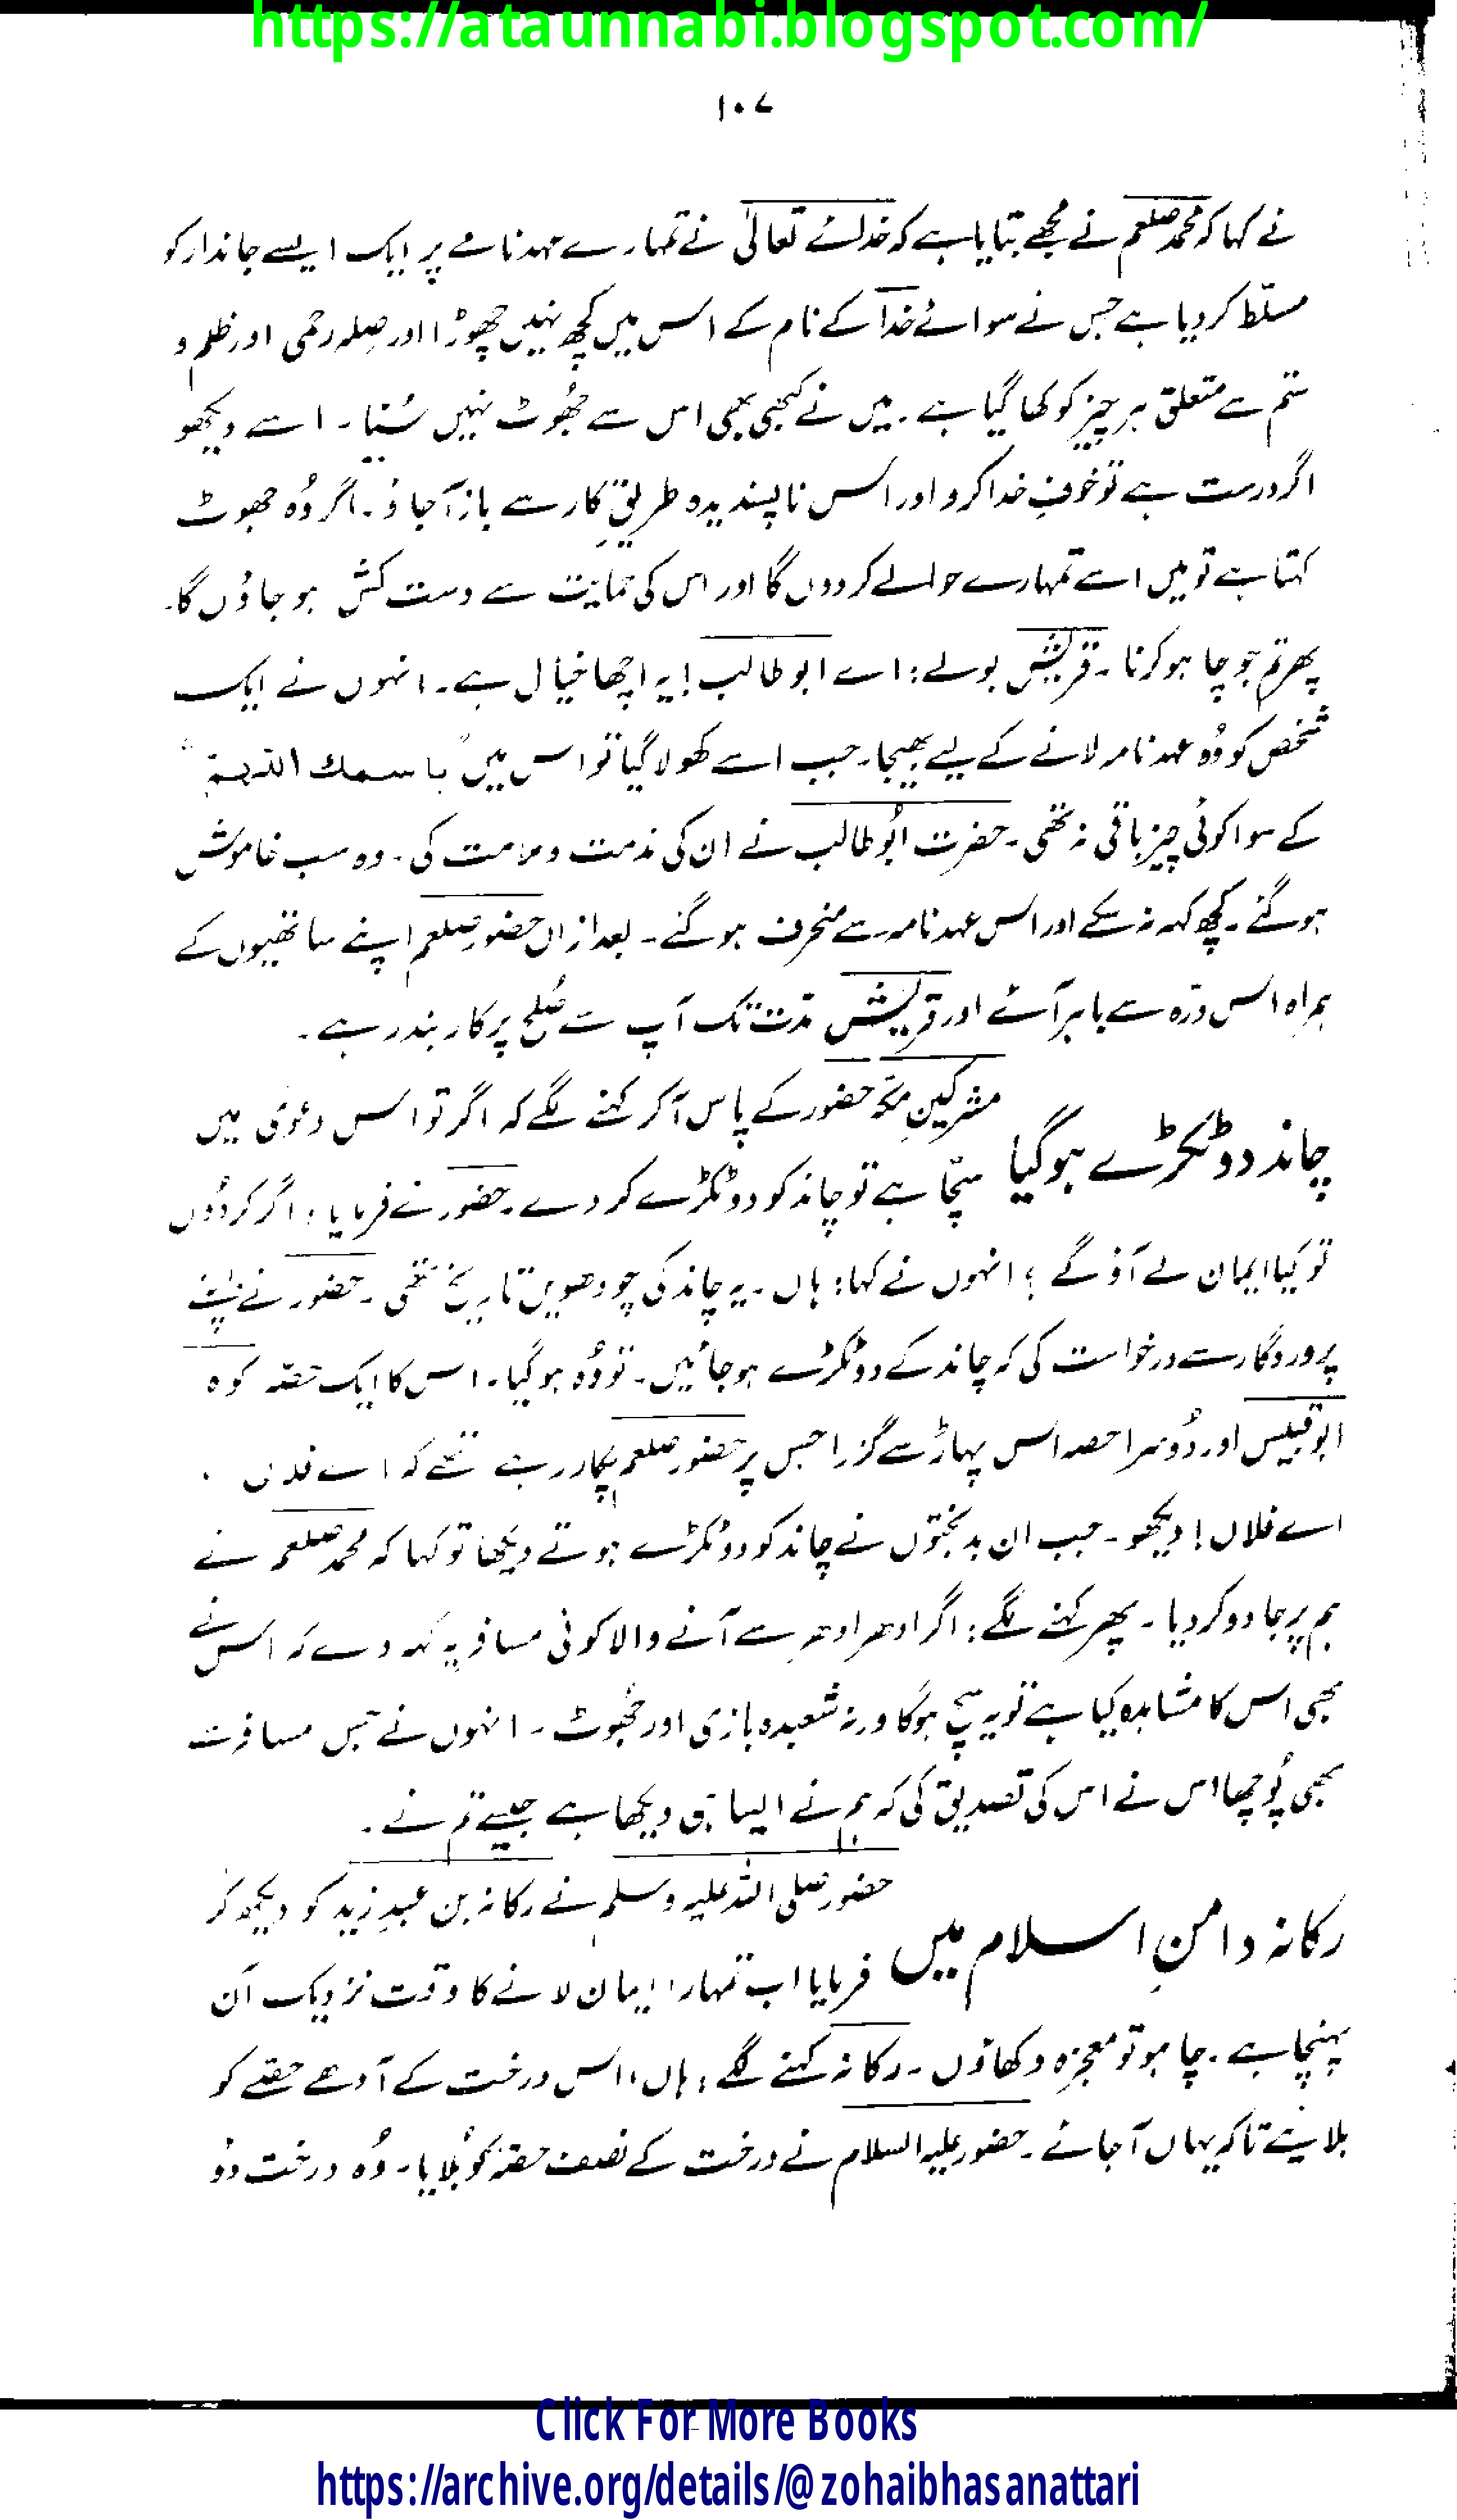 https://ataunnabi.blogspot.com/
۱۰۷
نے کہا کہ محمد صلعم نے مجھے بتایا ہے کہ خدائے تعالیٰ نے تمہارے عہدنامے پر ایک ایسے جاندار کو
مسلّط کر دیا ہے جس نے سوائے خدا کے نام کے اس میں کچھ نہیں چھوڑا اور صِلہ رحمی اور ظلم و
ستم سے متعلق ہر چیز کو کھا گیا ہے۔ میں نے کبھی بھی اس سے جھُوٹ نہیں سُنا۔ اسے دیکھو
اگر درست ہے تو خوفِ خدا کرو اور اس ناپسندیدہ طریقِ کار سے باز آجاؤ۔ اگر وُہ جھوٹ
کہتا ہے تو میں اسے تمہارے حوالے کر دوں گا اور اس کی حمایت سے دست کش ہو جاؤں گا۔
پھر تم جو چاہو کرنا۔ قریش بولے: اے ابو طالب! یہ اچھا خیال ہے۔ انہوں نے ایک
شخص کو وُہ عہد نامہ لانے کے لیے بھیجا۔ جب اسے کھولا گیا تو اس میں "باسمك اللّٰهم"
کے سوا کوئی چیز باقی نہ تھی۔ حضرت ابُو طالب نے ان کی مذمت و ملامت کی۔ وہ سب خاموش
ہو گئے۔ کچھ کہہ نہ سکے اور اس عہد نامہ سے منحرف ہو گئے۔ بعد ازاں حضور صلعم اپنے ساتھیوں کے
ہمراہ اس درّہ سے باہر آئے اور قریش مدّت تک آپ سے صُلح پر کاربند رہے۔
چاند دو ٹکڑے ہو گیا مشرکینِ مکّہ حضور کے پاس آ کر کہنے لگے کہ اگر تو اس دعویٰ میں
سچّا ہے تو چاند کو دو ٹکڑے کر دے۔ حضور نے فرمایا: اگر کر دُوں
تو کیا ایمان لے آؤ گے؟ انہوں نے کہا: ہاں۔ یہ چاند کی چودھویں تاریخ تھی۔ حضور نے اپنے
پروردگار سے درخواست کی کہ چاند کے دو ٹکڑے ہو جائیں۔ تو وُہ ہو گیا۔ اس کا ایک حصّہ کوہ
ابو قبیس اور دُوسرا حصہ اس پہاڑ سے گزرا جس پر حضور صلعم پکار رہے تھے کہ اے فلاں ۔
اے فلاں! دیکھو۔ جب ان بدبختوں نے چاند کو دو ٹکڑے ہوتے دیکھا تو کہا کہ محمد صلعم نے
ہم پر جادو کر دیا۔ پھر کہنے لگے: اگر ادھر ادھر سے آنے والا کوئی مسافر یہ کہہ دے کہ اس نے
بھی اس کا مشاہدہ کیا ہے تو یہ سچ ہو گا ورنہ شعبدہ بازی اور جھُوٹ۔ انہوں نے جس مسافر سے
بھی پُوچھا اس نے اس کی تصدیق کی کہ ہم نے ایسا ہی دیکھا ہے جیسے تم نے۔
رکانہ دامنِ اسلام میں حضور صلی اللہ علیہ وسلم نے رکانہ بن عبدِ زید کو دیکھ کر
فرمایا اب تمہارا ایمان لانے کا وقت نزدیک آن
پہنچا ہے۔ چاہو تو معجزہ دکھاؤں۔ رکانہ کہنے لگے: ہاں، اس درخت کے آدھے حصّے کو
بلائیے تاکہ یہاں آ جائے۔ حضور علیہ السلام نے درخت کے نصف حصّہ کو بُلایا۔ وُہ درخت دو
Click For More Books
https://archive.org/details/@zohaibhasanattari